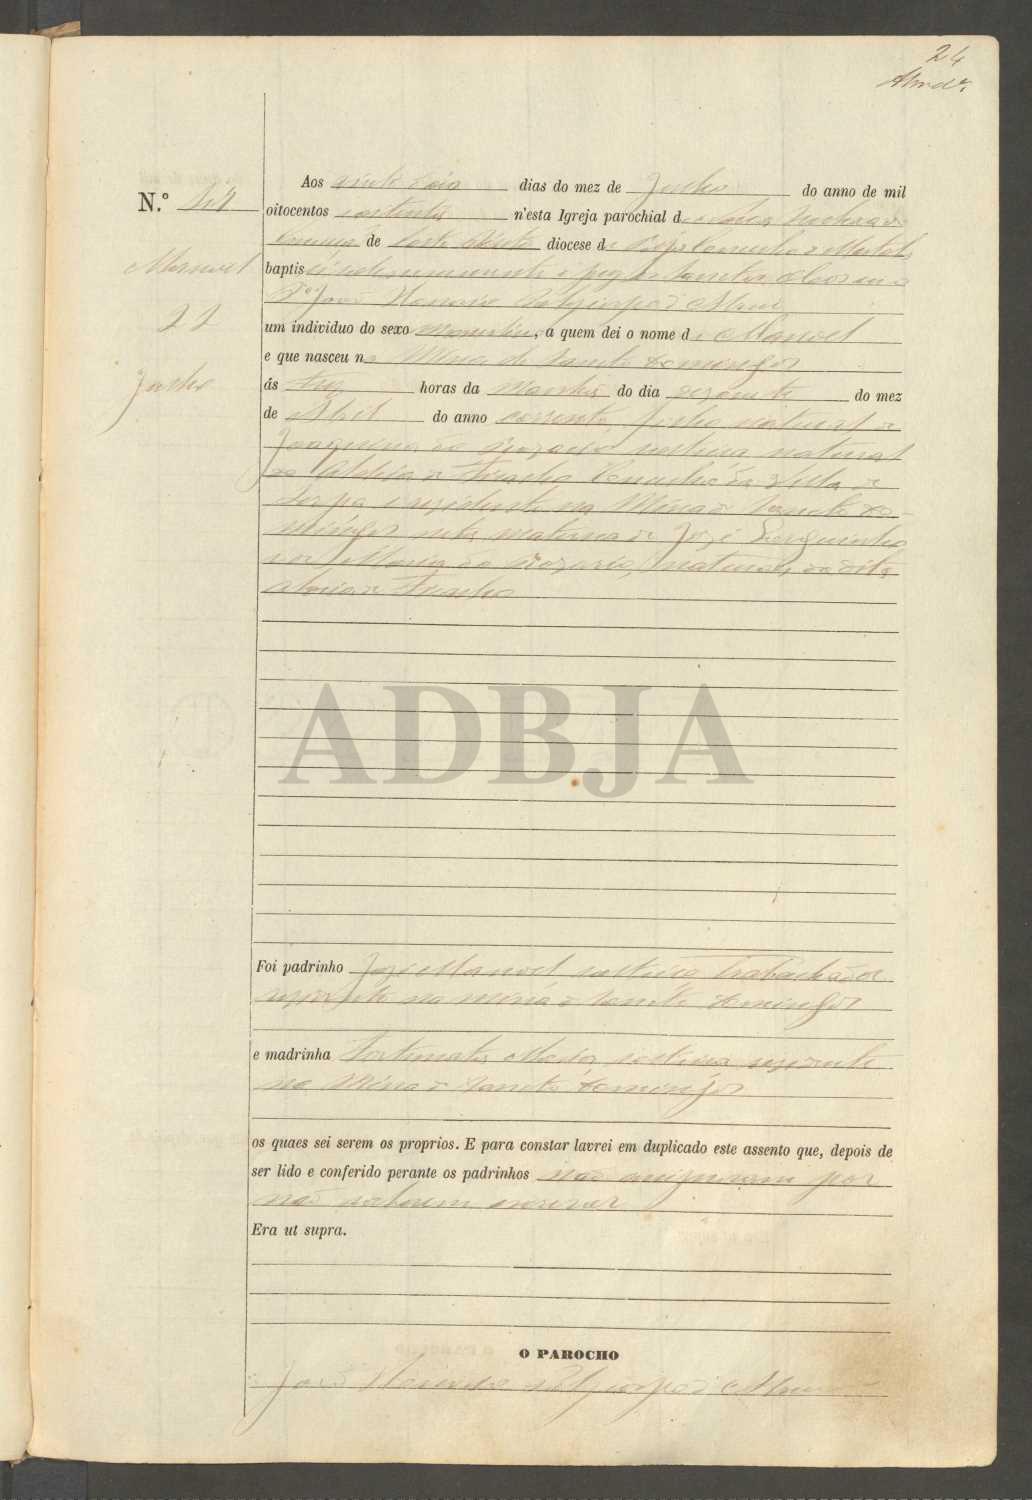 24
N.º
Manoel
22
Junho
Aos vinte dois dias do mez de Junho do anno de mil
oitocentos setenta n'esta Igreja parochial de
de Corte do Pinto diocese de Beja Concelho de Mertola
baptisei solemnemente e puz os Santos Oleos eu o
João
um individuo do sexo Masculino, a quem dei o nome de Manoel
e que nasceu na Mina de Sancto Domingos
ás tres horas da Manhã do dia dezasete do mez
de Abril do anno corrente, filho natural de
Joaquina do Rozario solteira natural
da Aldeia de Concelho da Villa de
Serpa e rezidente na Mina de Sancto Do-
mingos neto materno de José
e de Maria do Rozario, naturaes da dita
Aldeia de
ADBJA
Foi padrinho José Manoel solteiro Trabalhador
rezidente na mina de Sancto Domingos
e madrinha Fortunata Maria solteira rezidente
na Mina de Sancto Domingos
os quaes sei serem os proprios. E para constar lavrei em duplicado este assento que, depois de
ser lido e conferido perante os padrinhos não assignaram por
não saberem escrever
Era ut supra.
O PAROCHO
João